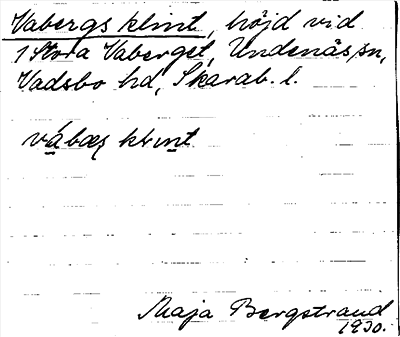 Vabergs klint, höjd vid
1 Stora Vaberget, Undenäs, sn,
Vadsbo hd, Skarab. l.
klınt
Maja Bergstrand
1930.